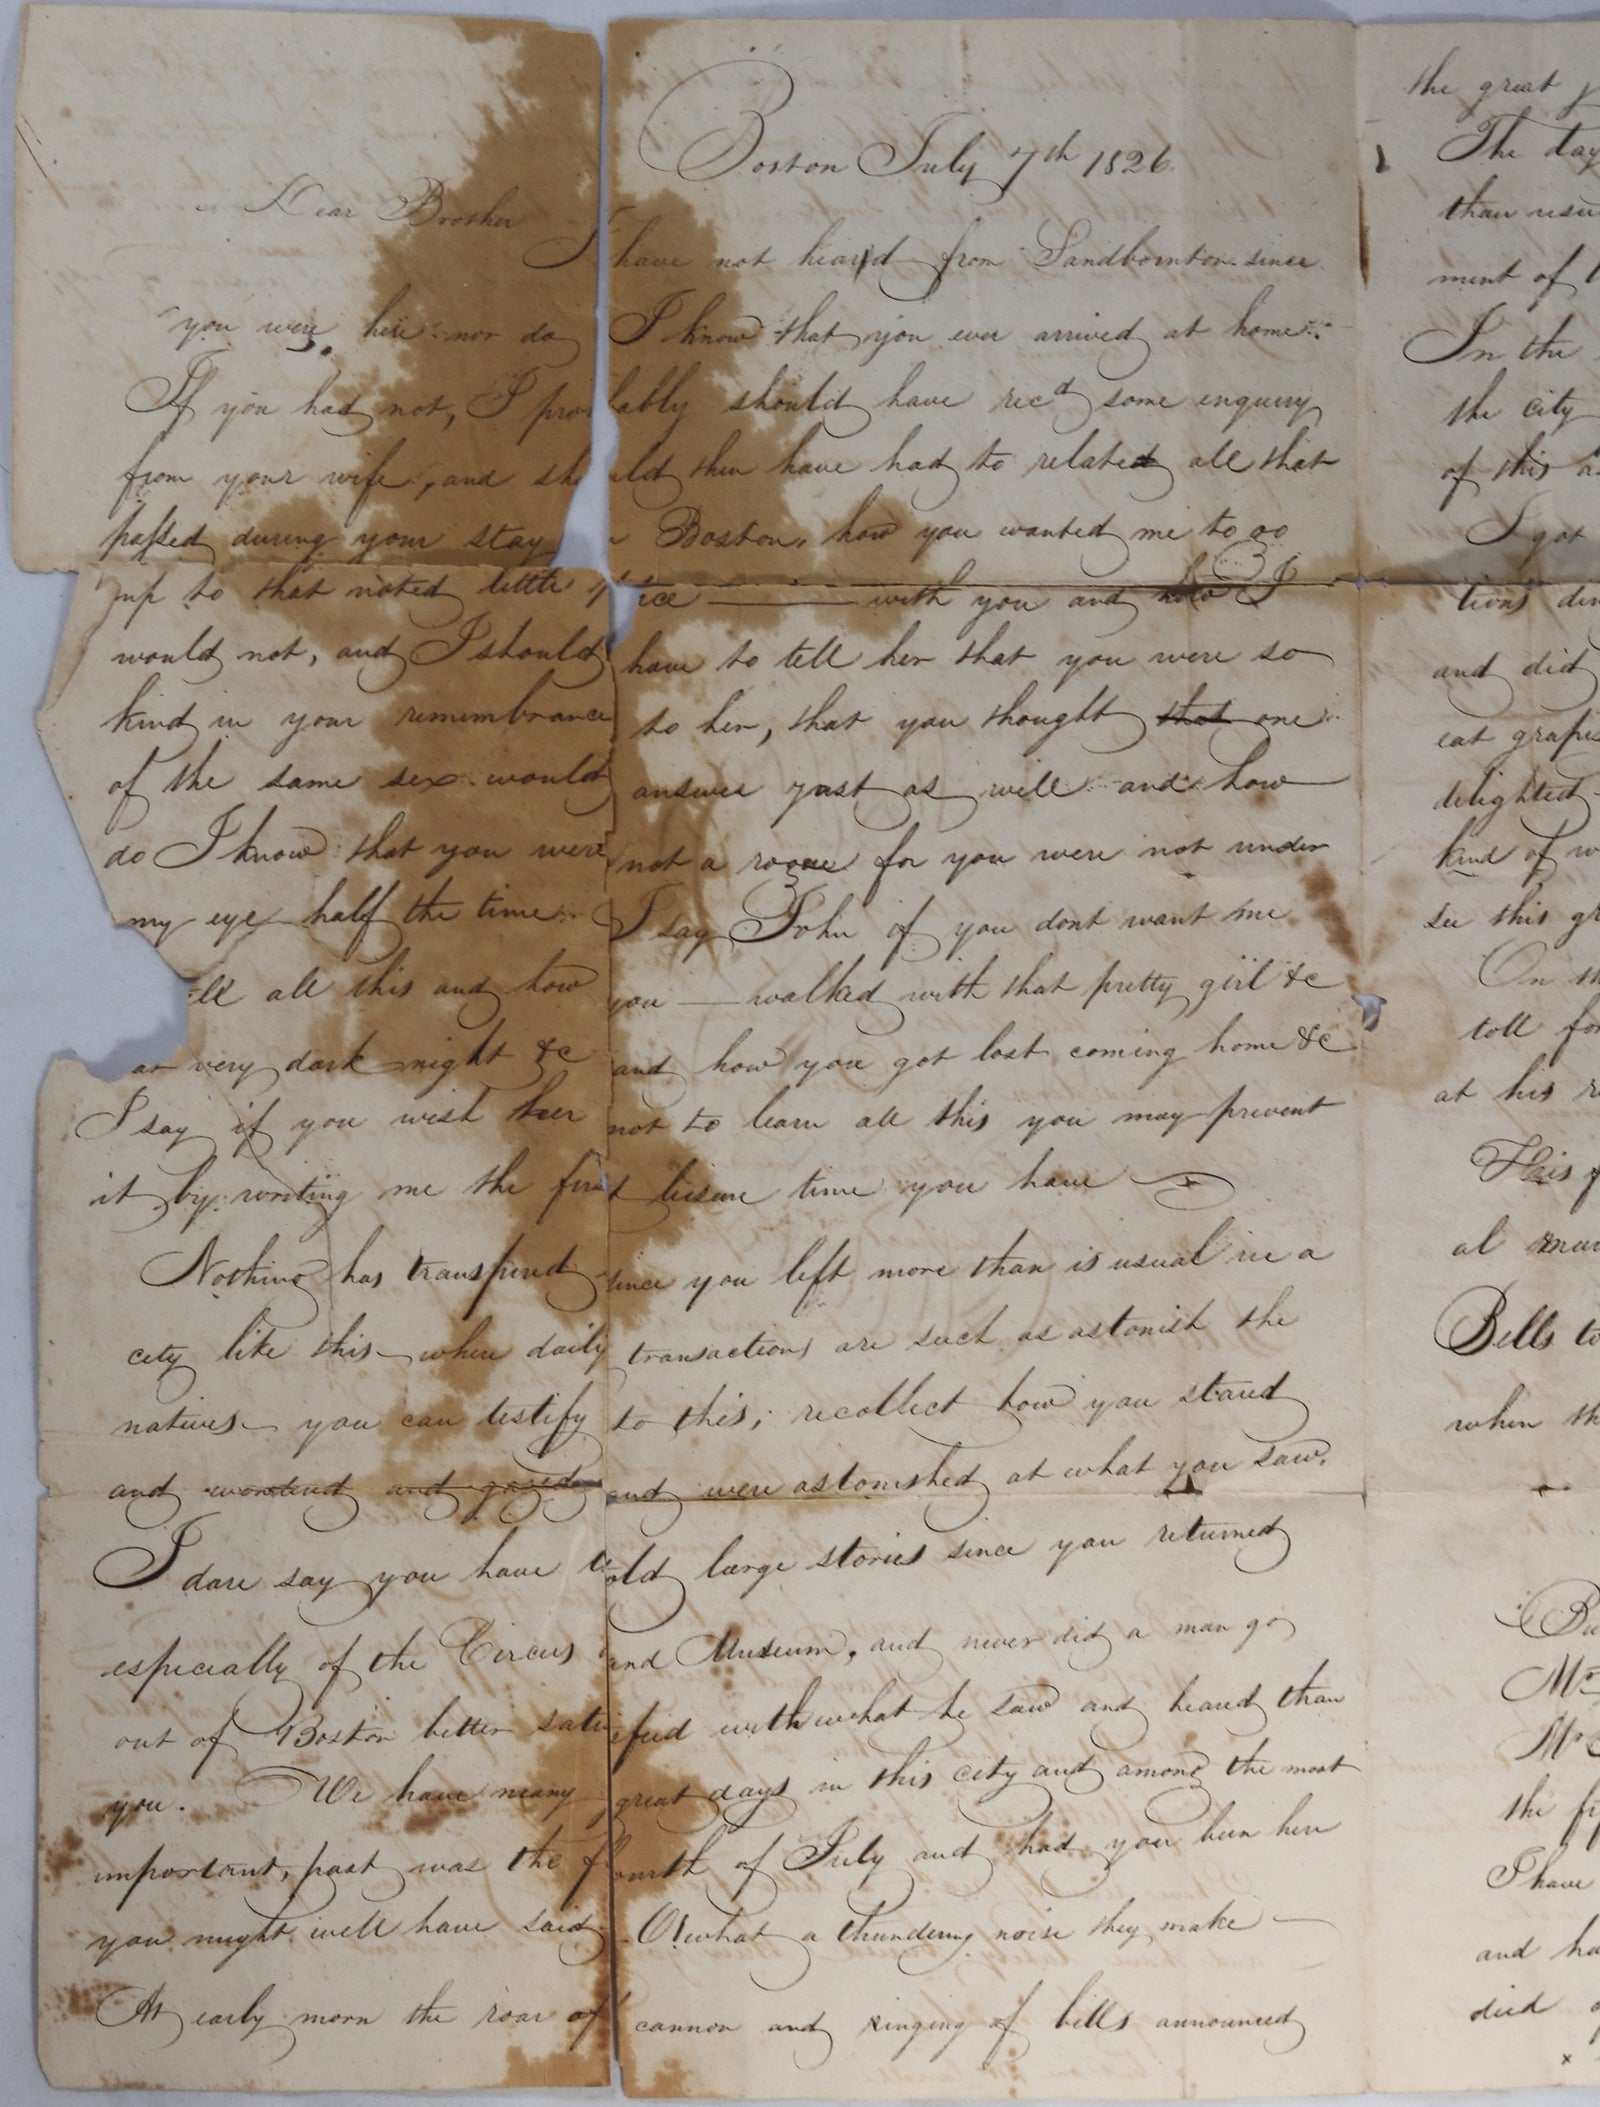 Boston July 7th 1826.
Dear Brother
I have not heard from Sandbornton since
you were here nor do I know that you ever arrived at home
If you had not, I probably should have recd some enquiry
from your wife, and should then have had to related all that
passed during your stay in Boston, how you wanted me to go
up to that noted little place ——— with you and how I
would not, and I should have to tell her that you were so
kind in your remembrance to her, that you thought that one
of the same sex would answer just as well and how
do I know that you were not a rogue for you were not under
my eye half the time I say John if you dont want me
all this and how you — walked with that pretty girl &c
very dark night &c and how you got lost coming home &c
I say if you wish her not to learn all this you may prevent
it by writing me the first leisure time you have
Nothing has transpired since you left more than is usual in a
city like this — where daily transactions are such as astonish the
natives — you can testify to this; recollect how you stared
and wondered and gazed and were astonished at what you saw.
I dare say you have told large stories since you returned
especially of the Circus and Museum, and never did a man go
out of Boston better satisfied with what he saw and heard than
you. We have many great days in this city and among the most
important, past was the fourth of July and had you been here
you might well have said O! what a thundering noise they make —
At early morn the roar of cannon and ringing of bells announced
the great
The day
than
ment of
In the
the city
of this
I got
tions
and did
eat
delighted
kind of
see this
On
toll for
at his
His
al
Bells
when
Mr
Mr
the
I have
and
died